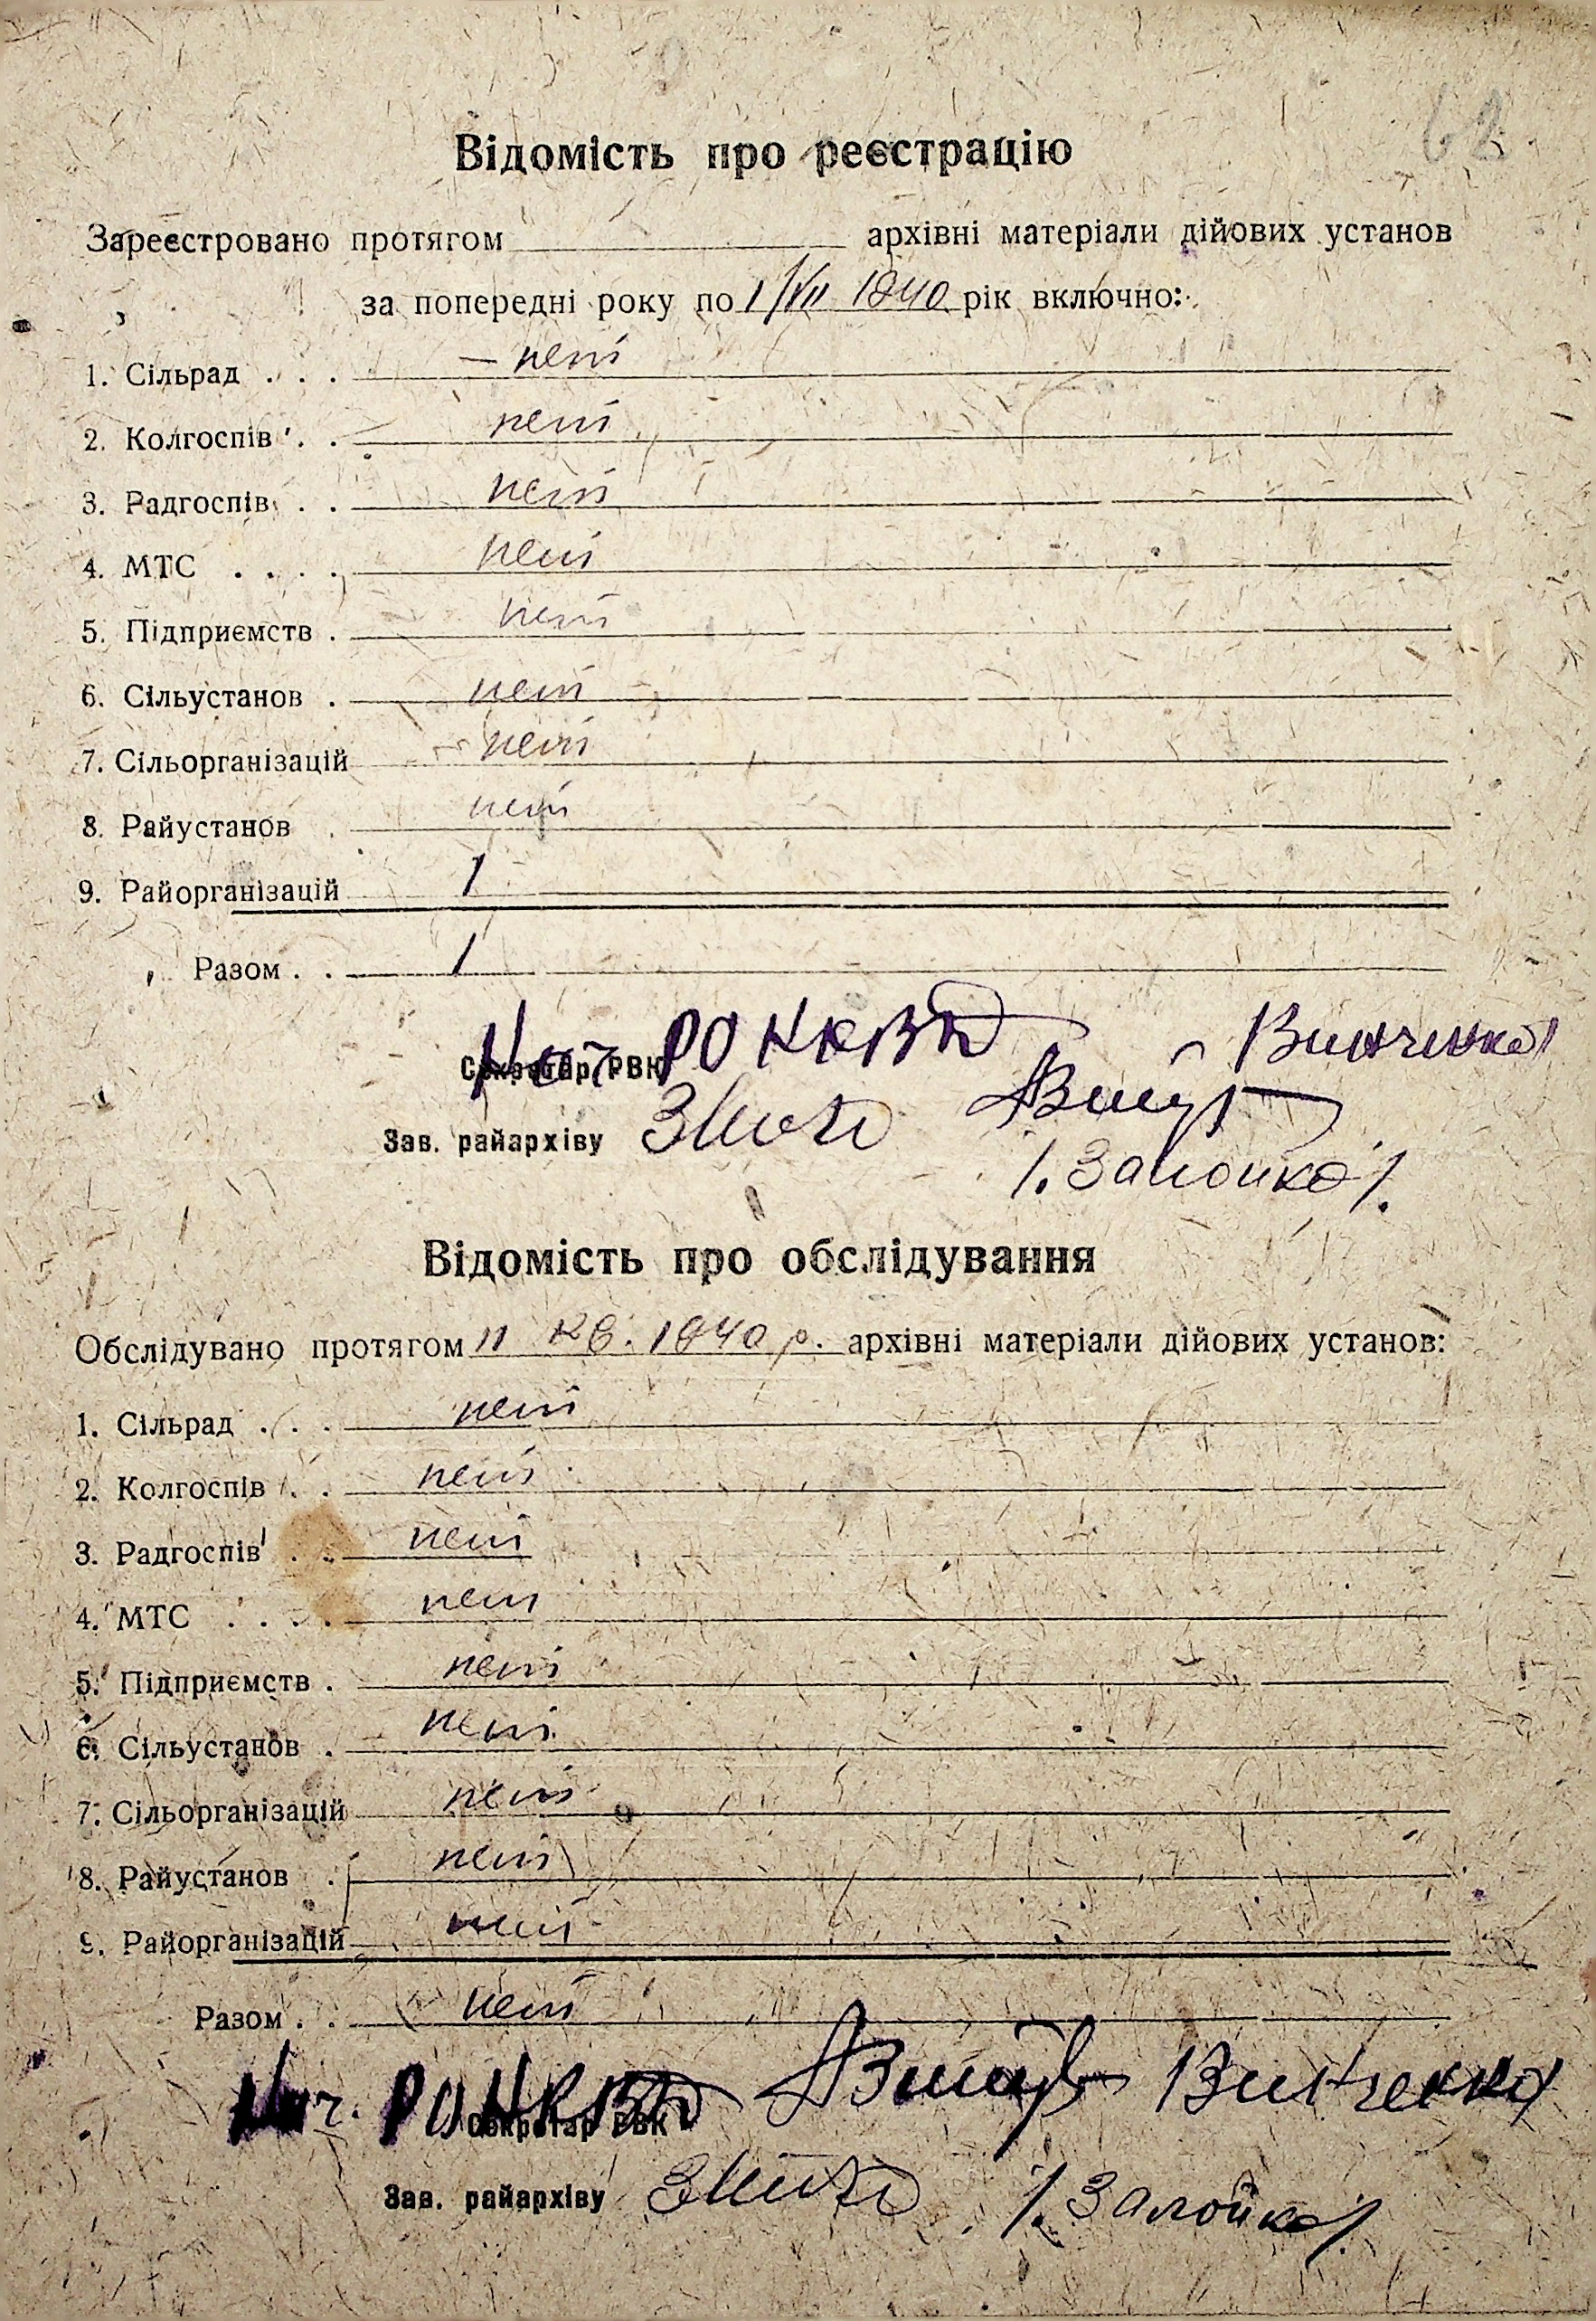 62
Відомість про реєстрацію
Зареєстровано протягом архівні матеріали дійових установ
за попередні року по 1/VII 1940 рік включно:
1. Сільрад . . . — нет
2. Колгоспів . . нет
3. Радгоспів . . нет
4. МТС . . . . нет
5. Підприємств . нет
6. Сільустанов . нет
7. Сільорганізацій нет
8. Райустанов . нет
9. Райорганізацій 1
Разом . . 1
Нач РО НКВД Винченко
Секретар РВК
Зав. райархіву /.Залойко/.
Відомість про обслідування
Обслідувано протягом II кв. 1940 р. архівні матеріали дійових установ:
1. Сільрад . . . нет
2. Колгоспів . . нет
3. Радгоспів . . нет
4. МТС . . . . нет
5. Підприємств . нет
6. Сільустанов . нет
7. Сільорганізацій нет
8. Райустанов . нет
9. Райорганізацій нет
Разом . . нет
Нач. РО НКВД Винченко
Секретар РВК
Зав. райархіву /.Залойко/.